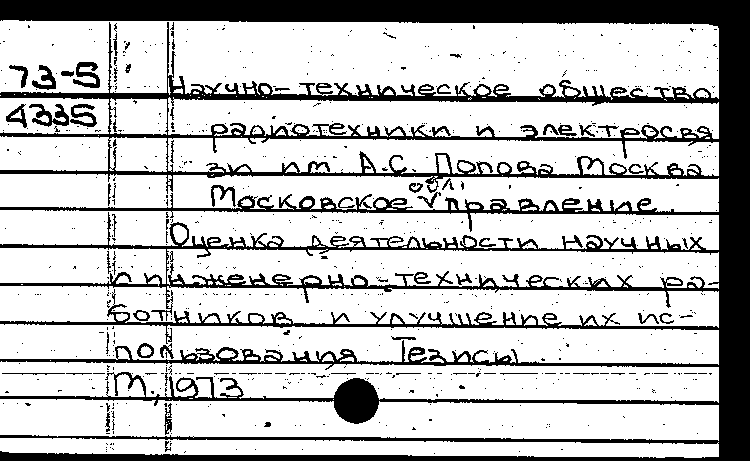 73-5
4335
Научно-техническое общество
радиотехники и электросвя
зи им А.С. Попова Москва
Московское обл. правление
Оценка деятельности научных
и инженерно-технических ра-
ботников и улучшение их ис-
пользования Тезисы
М., 1973